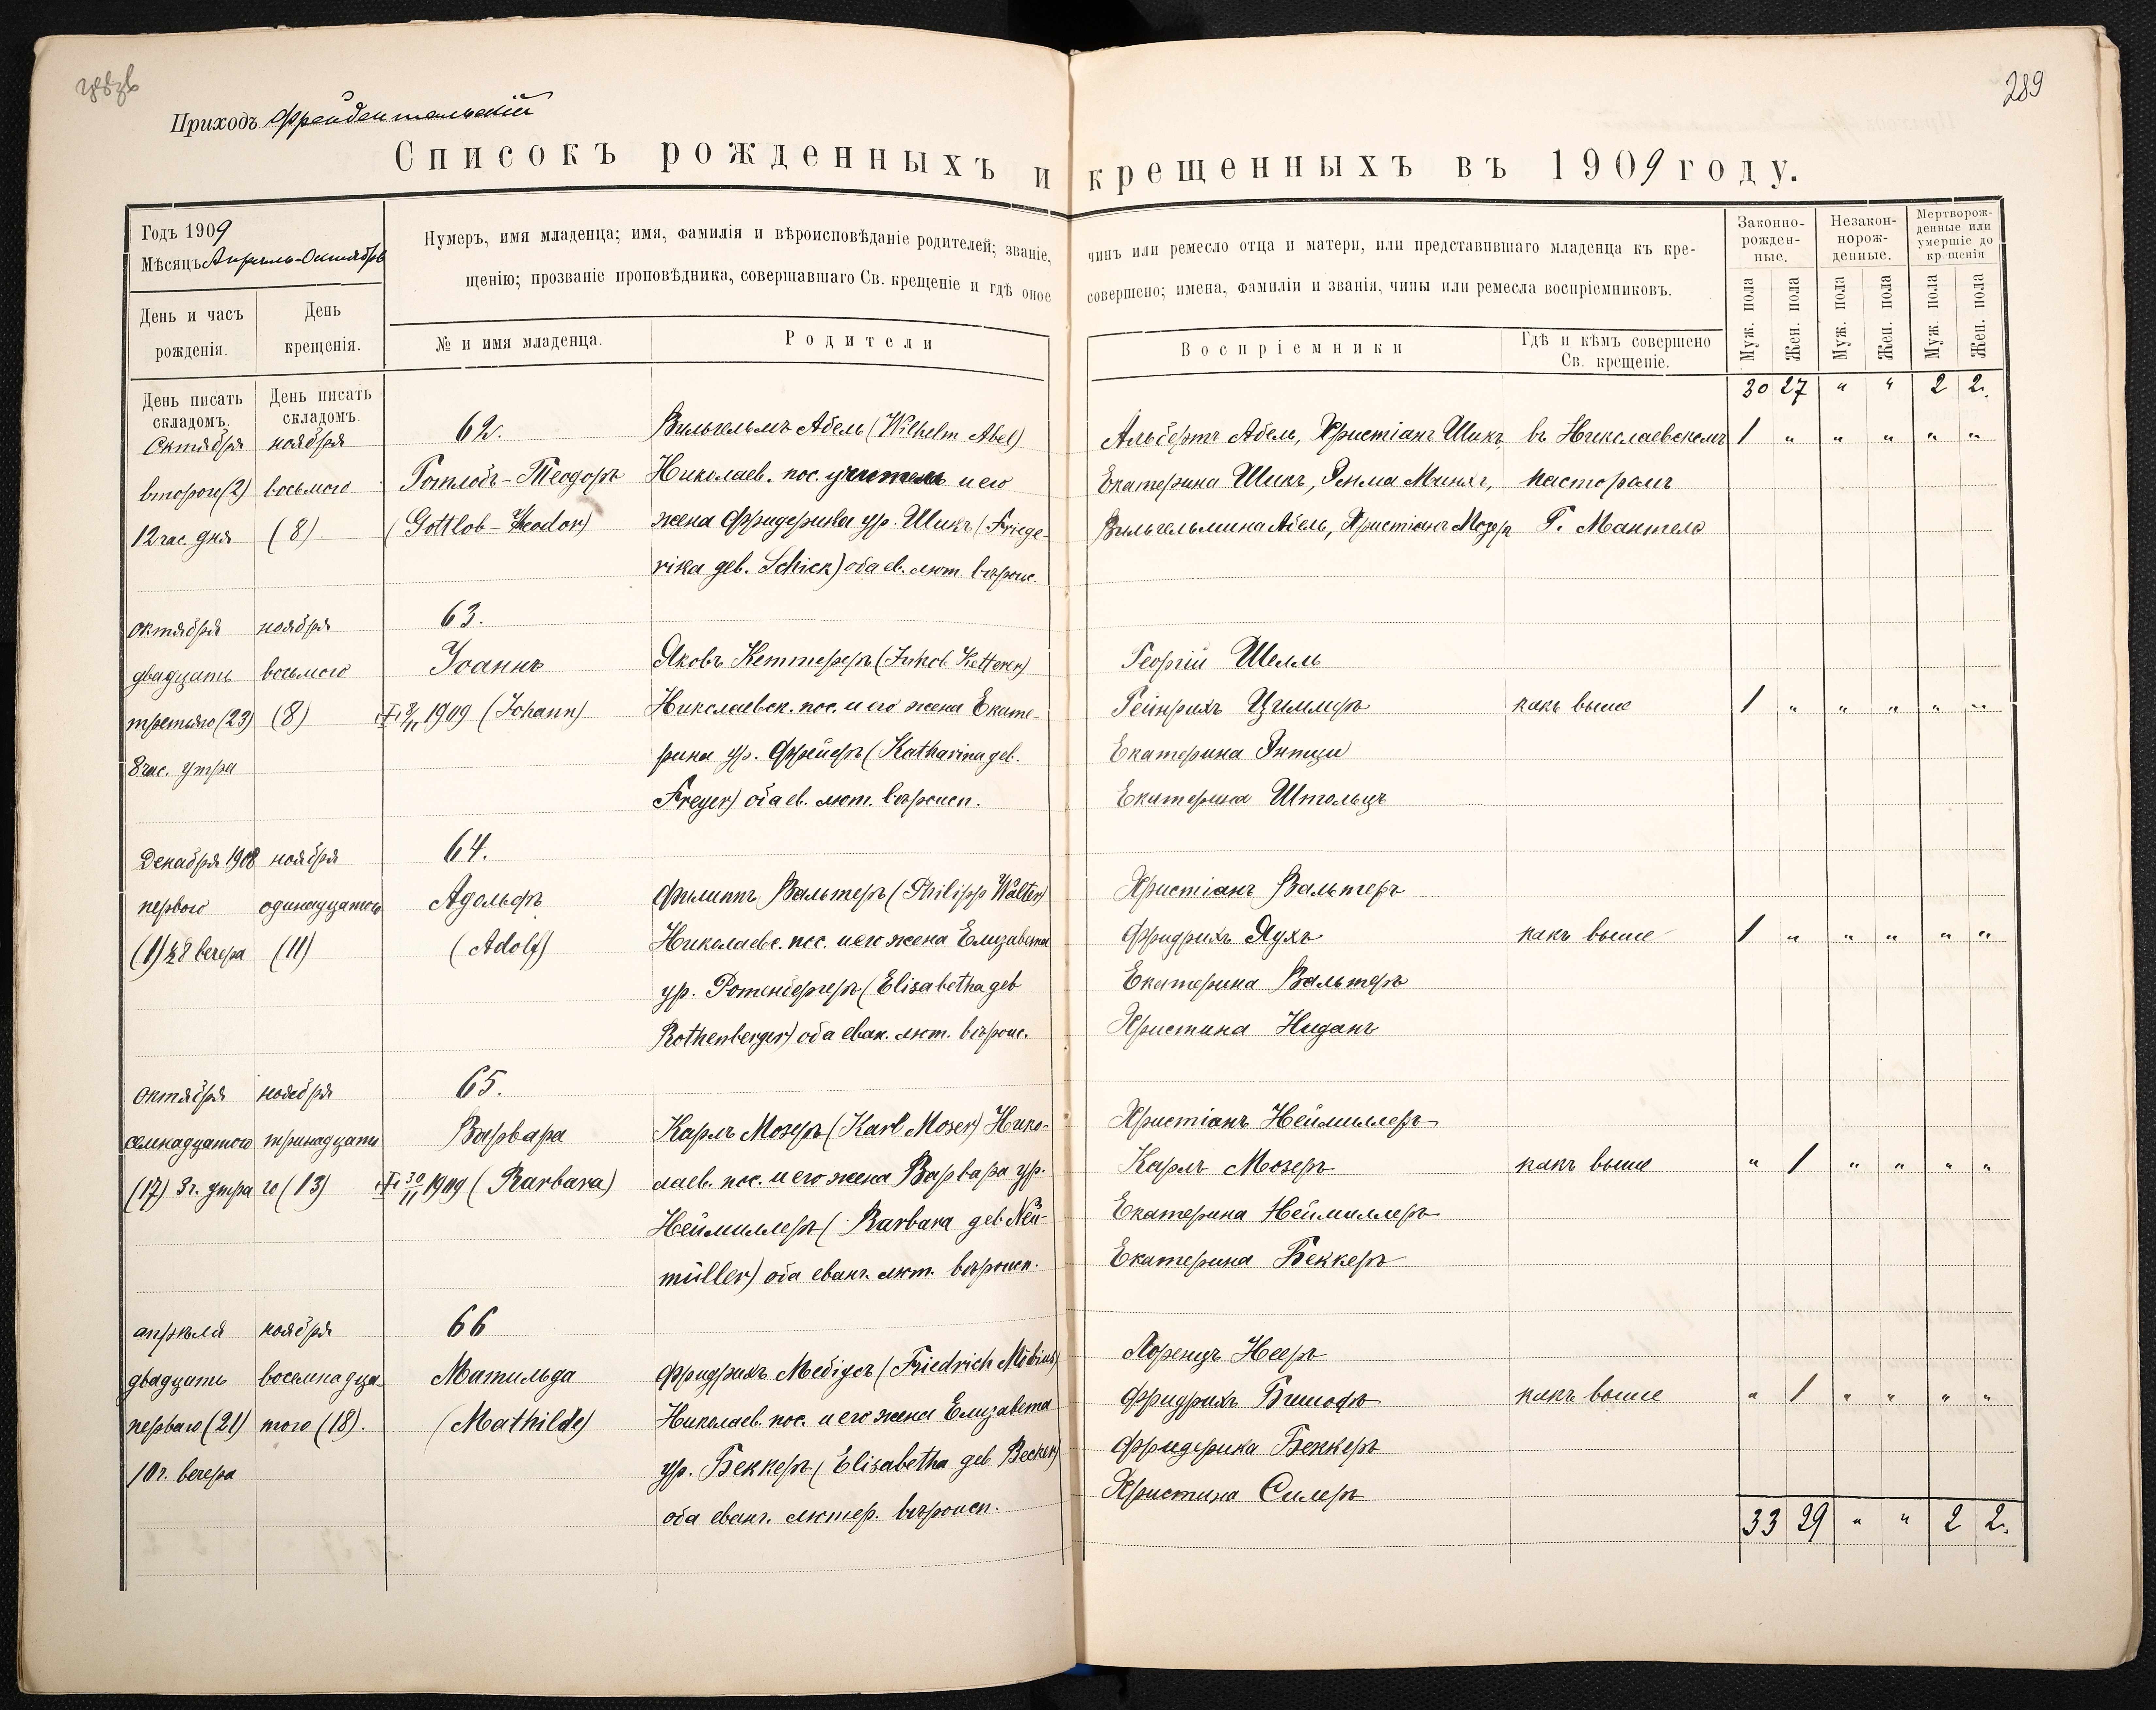 289
Приходъ Фрейдентальскій
Списокъ рожденныхъ и крещенныхъ въ 1909 году.
Годъ 1909
Мѣсяцъ Апрѣль-Октябрь
Нумеръ, имя младенца; имя, фамилія и вѣроисповѣданіе родителей; званіе, чинъ или ремесло отца и матери, или представившаго младенца къ кре-
щенію; прозваніе проповѣдника, совершавшаго Св. крещеніе и гдѣ оное совершено; имена, фамиліи и званія, чины или ремесла воспріемниковъ.
Законно-
рожден-
ные.
Незакон-
норож-
денные.
Мертворож-
денные или
умершіе до
крещенія
Муж. пола
Жен. пола
Муж. пола
Жен. пола
Муж. пола
Жен. пола
День и часъ
рожденія.
День
крещенія.
№ и имя младенца.
Родители
Воспріемники
Гдѣ и кѣмъ совершено
Св. крещеніе.
День писать
складомъ.
День писать
складомъ.
30 27 " " 2 2.
Октября
второго (2)
12 час. дня
ноября
восьмого
(8).
62.
Готлобъ-Теодоръ
(Gottlob-Theodor)
Вильгельмъ Абель (Wilhelm Abel)
Николаев. пос. учитель и его
жена Фридерика ур. Шикъ (Friede-
rika geb. Schick) оба ев. лют. вѣроис.
Альбертъ Абель, Христіанъ Шикъ,
Екатерина Шикъ,
Вильгельмина Абель, Христіанъ Мозеръ
въ Николаевскомъ
пасторомъ
Г. Мантель
1 " " " " "
октября
двадцать
третьяго (23)
8 час. утра
ноября
восьмого
(8)
63.
Іоаннъ
1909 (Johann)
Яковъ Кеттереръ (Jakob Ketterer)
Николаевск. пос. и его жена Екате-
рина ур. Фрейеръ (Katharina geb.
Freyer) оба ев. лют. вѣроисп.
Георгій Шелль
Гейнрихъ Циммеръ
Екатерина
Екатерина Штольцъ
какъ выше
1 " " " " "
Декабря 1908
первого
(1) ½8 вечера
ноября
одинадцатого
(11)
64.
Адольфъ
(Adolf)
Филиппъ Вальтеръ (Philipp Walter)
Николаевс. пос. и его жена Елизавета
ур. Ротенбергеръ (Elisabetha geb
Rothenberger) оба еван. лют. вѣроис.
Христіанъ Вальтеръ
Фридрихъ
Екатерина Вальтеръ
Христина Ниданъ
какъ выше
1 " " " " "
октября
семнадцатого
(17) 3 г. утра
ноября
тринадцата
го (13)
65.
Варвара
30/11 1909 (Barbara)
Карлъ Мозеръ (Karl Moser) Нико-
лаев. пос. и его жена Варвара ур.
Неймиллеръ (Barbara geb Neu-
müller) оба еванг. лют. вѣроисп.
Христіанъ Неймиллеръ
Карлъ Мозеръ
Екатерина Неймиллеръ
Екатерина Беккеръ
какъ выше
" 1 " " " "
апрѣля
двадцать
перваго (21)
10 г. вечера
ноября
восемнадца-
того (18).
66
Матильда
(Mathilde)
Фридрихъ Мебіусъ (Friedrich Möbius)
Николаев. пос. и его жена Елизавета
ур. Беккеръ (Elisabetha geb Becker)
оба еванг. лютер. вѣроисп.
Лоренцъ Нееръ
Фридрихъ Бишофъ
Фридерика Беккеръ
Христина Силеръ
какъ выше
" 1 " " " "
33 29 " " 2 2.